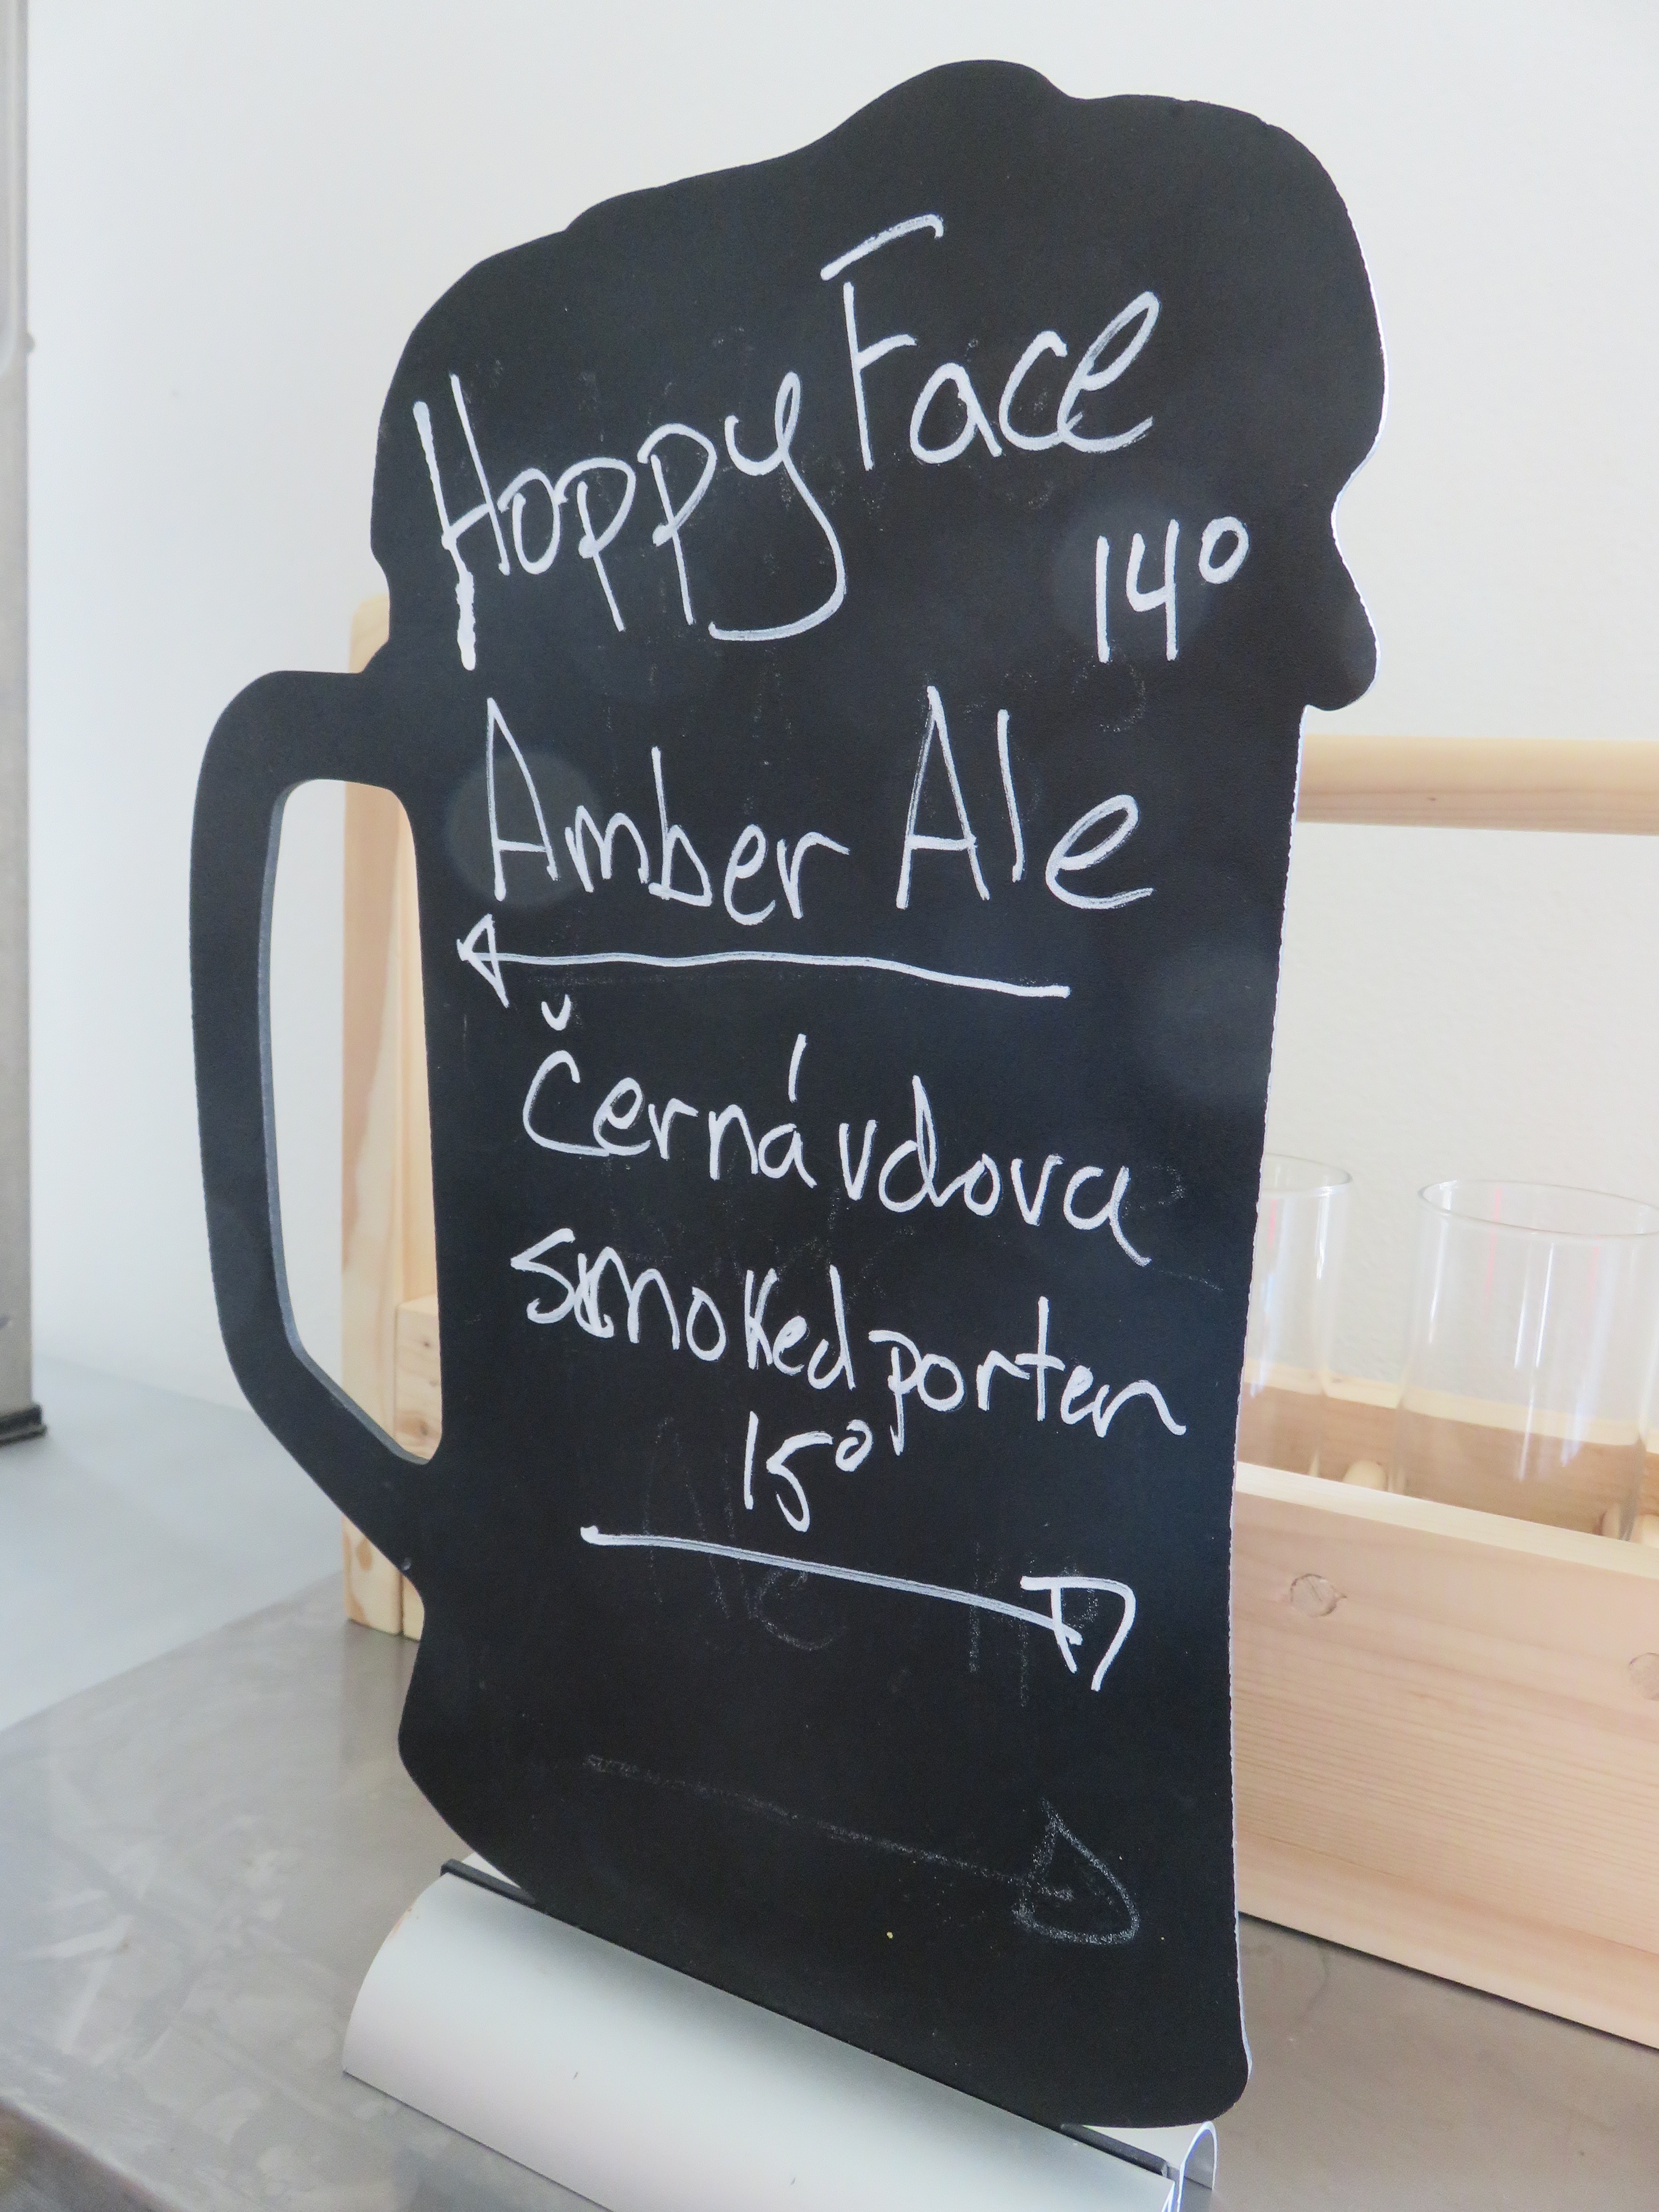 Hoppy Face
14°
Amber Ale
Černá vdova
smoked porter
15°